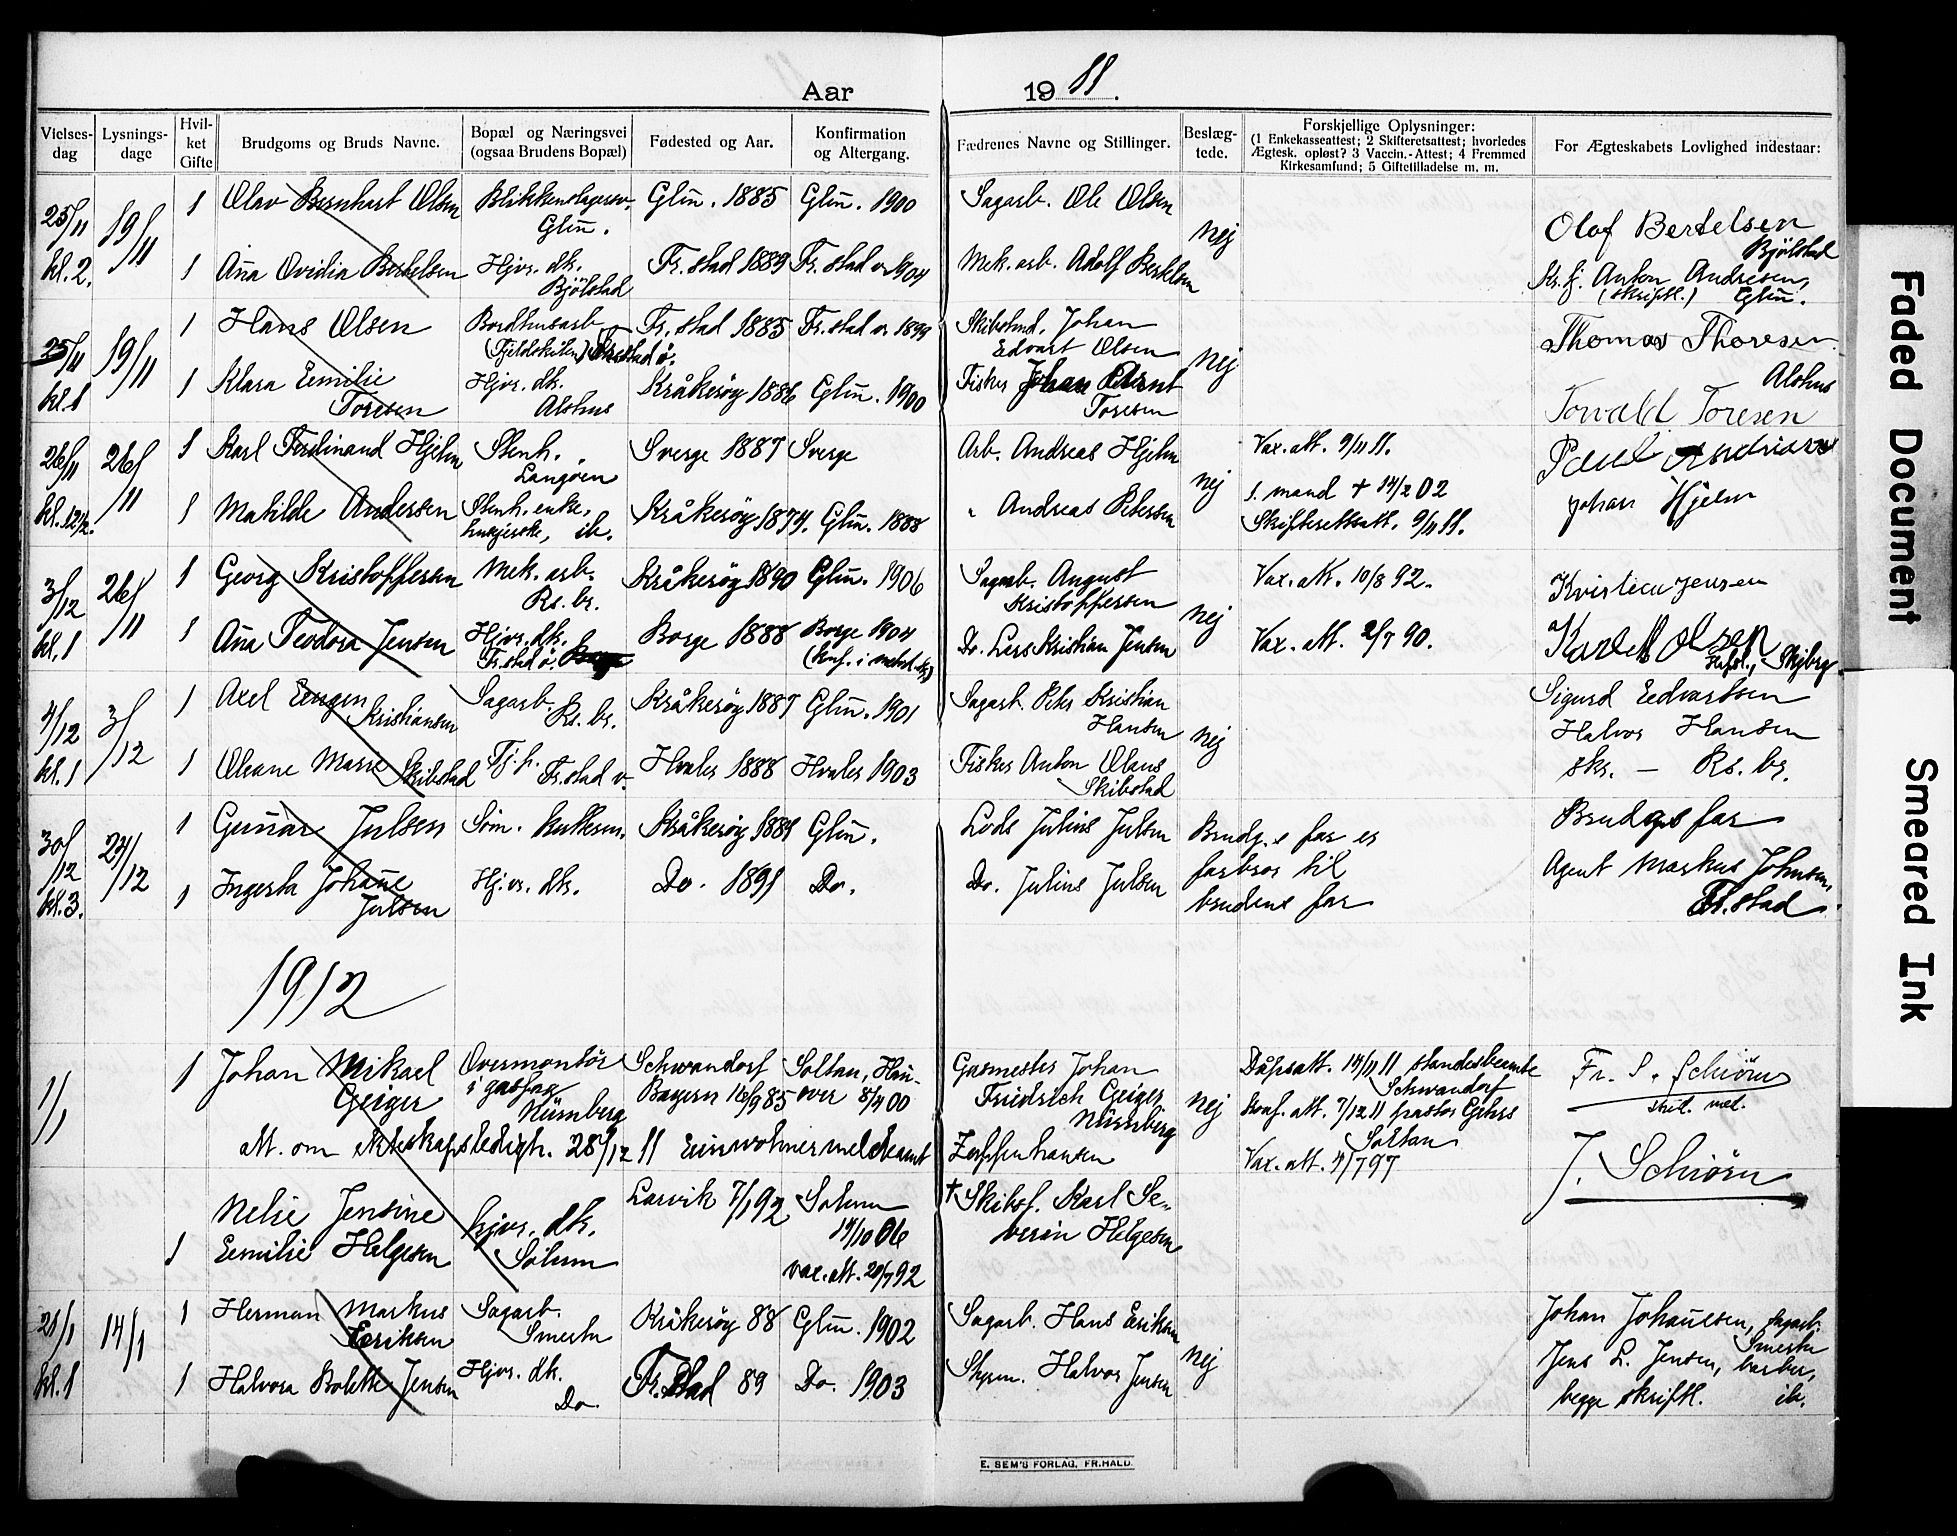 Aar 1911.
Vielses-dag
Lysnings-dage
Hvil-ket Gifte
Brudgoms og Bruds Navne.
Bopæl og Næringsvei (ogsaa Brudens Bopæl)
Fødested og Aar.
Konfirmation og Altergang.
Fædrenes Navne og Stillinger.
Beslæg-tede.
Forskjellige Oplysninger:
(1 Enkekasseattest; 2 Skifteretsattest; hvorledes
Ægtesk. opløst? 3 Vaccin.-Attest; 4 Fremmed
Kirkesamfund; 5 Giftetilladelse m. m.
For Ægteskabets Lovlighed indestaar:
25/11 kl. 2. 19/11
1 Olav Bernhart Olsen Glm̄. 1885 Glm̄. 1900 Sagarb. Ole Olsen nej Olaf Bertelsen
Glm̄. Bjölstad
1 An̄a Ovidia Bertelsen Hjvs. dtr. Fr.stad 1889 Fr.stad v. 1904 Mek. arb. Adolf Bertelsen Anton Andresen,
Bjölstad (skriftl.) Glm̄.
25/11 kl. 1 19/11
1 Hans Olsen Bordhusarb. Fr.stad 1885 Fr.stad v. 1899 Johan nej Thomas Thoresen
Edvart Olsen Alshus
1 Klara Eemilie Hjvs. dtr. Kråkerøy 1886 Glm̄. 1900 Fisker Johan Bernt Torvald Toresen
Toresen Alshus Toresen
26/11 kl. 12 1/2. 26/11
1 Karl Ferdinand Hjelm Stenh. Sverge 1887 Sverge Arb. Andreas Hjelm nej Vax. att. 9/11 11. Paul
Langøen
1 Matilde Andersen Stenh. enke, Kråkerøy 1874. Glm̄. 1888 " Andreas Petersen 1. mand + 14/2 02 Johan Hjelm
ib. Skifterettsatt. 9/11 11.
3/12 kl. 1 26/11
1 Georg Kristoffersen Mek. arb. Kråkerøy 1890 Glm̄. 1906 Sagarb. August nej Vax. att. 10/8 92. Jensen
Rs. br. Kristoffersen
1 An̄a Teodora Jensen Hjvs. dtr. Borge 1888 Borge 1904 Do. Lars Kristian Jensen Vax. att. 2/7 90. Olsen
Fr.stad ö. Skjeberg
4/12 kl. 1 3/12
1 Axel Eeugen Sagarb. Kråkerøy 1887 Glm̄. 1901 Sagarb. Peter Kristian nej Sigurd Eedvartsen
Kristiansen Rs. br. Hansen Halvor Hansen
1 Oleane Marie Tj. p. Hvaler 1888 Hvaler 1903 Fisker Anton Olaus skr. — Rs. br.
Skibstad Fr.stad v. Skibstad
30/12 kl. 3. 24/12
1 Gun̄ar Julsen Söm. Kråkerøy 1889 Glm̄. Lods Julius Julsen Brudg.s far er Brudgs far
farbror til Agent Markus Johnsen,
1 Ingerta Johan̄e Hj.vs. dtr. Do. 1891 Do. Do. Julius Julsen brudens far Fr.stad
Julsen
1912
1/1
1 Johan Mikael Overmontör Schwandorf Soltau, Han- Gasmester Johan nej Dåpsatt. 14/11 11 standesbeamte Fr. S. Schiörn
Geiger i gasfag Bayern 16/9 85 over 8/4 00 Friedrich Geiger Schwandorf
Nürnberg Nürnberg Konf. att. 7/12 11 pastor Gehrs
Att. om ekteskapsledigh. 28/12 11 Eeinwohnermeldeamt Zuffenhausen Soltau
Vax. att. 4/7 97 J. Schiörn
Nelie Jensine hjvs. dtr. Larvik 7/1 92 Solum † Skibsf. Karl Se-
1 Eemilie Helgesen Solum 14/10 06 verin Helgesen
vax. att. 20/7 92
21/1 kl. 1 14/1
1 Herman Markus Sagarb. Kråkerøy 88 Glm̄. 1902 Sagarb. Hans Eeriksen nej Johan Johan̄esen, sagarb.
Eeriksen Smertu Smertu
1 Halvora Bolette Jensen Hjvs. dtr. Fr.stad 89 Do. 1903 Halvor Jensen Jens L. Jensen, barber,
Do. begge skriftl. ib.
E. SEM'S FORLAG, FR.HALD.
Faded Document
Smeared Ink